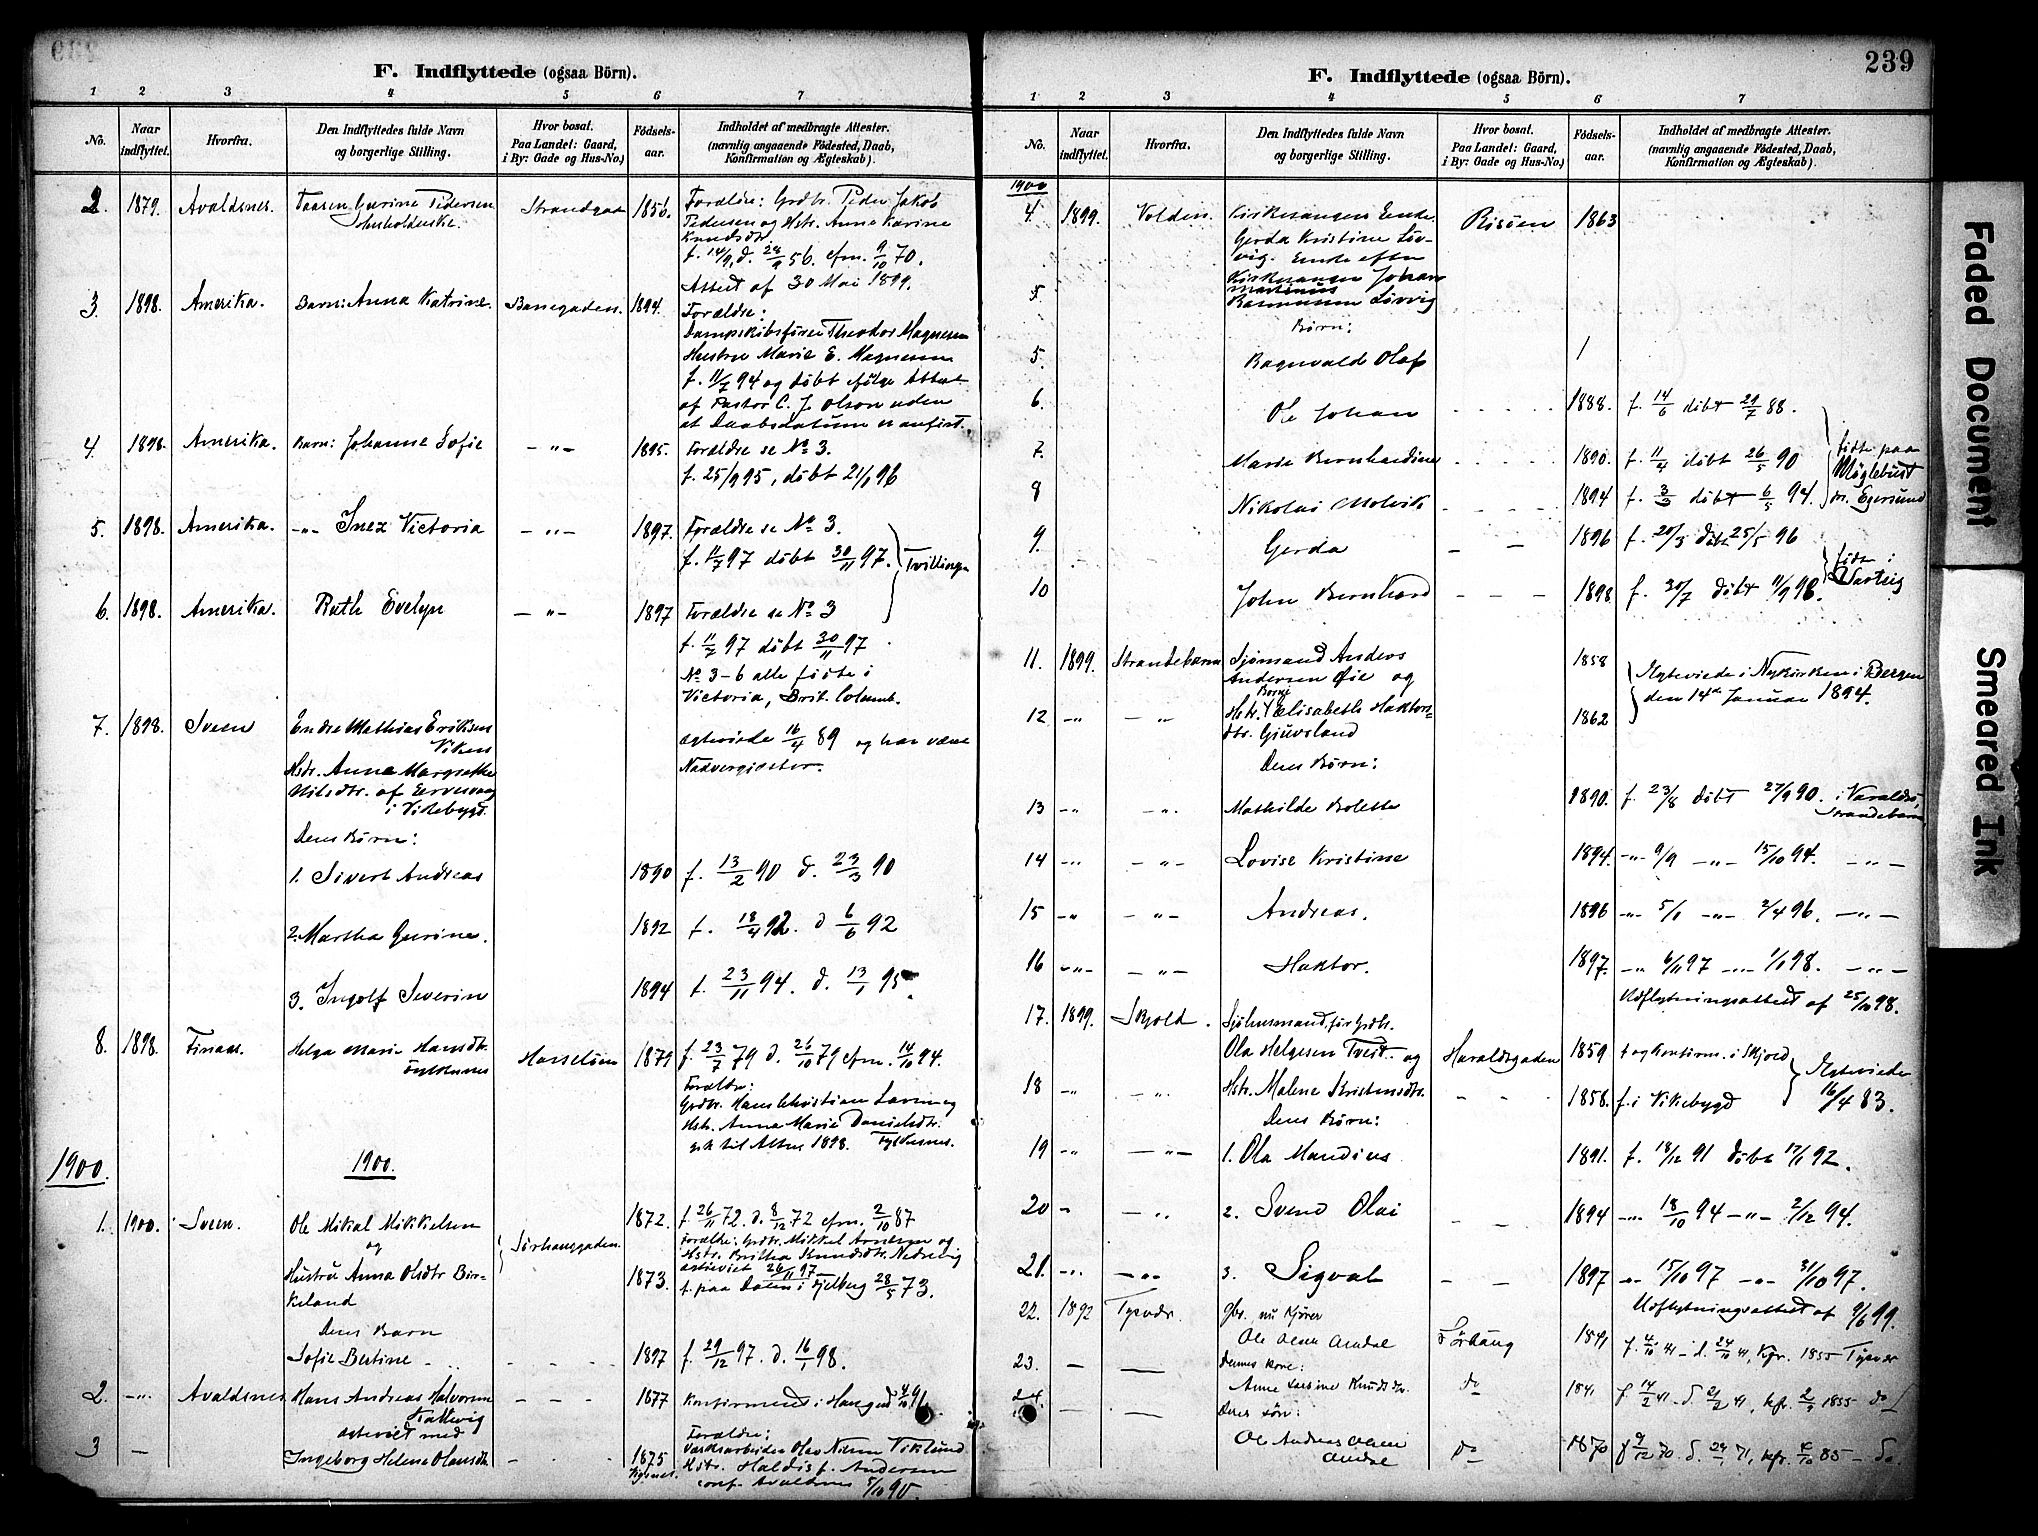 F. Indflyttede (ogsaa Börn).
1 2 3 4 5 6 7
No. Naar indflyttet. Hvorfra. Den Indflyttedes fulde Navn og borgerlige Stilling. Hvor bosat. Paa Landet: Gaard, i By: Gade og Hus-No.) Födsels-aar. Indholdet af medbragte Attester. (navnlig angaaende Födested, Daab, Konfirmation og Ægteskab).
2. 1879. Avaldsnes. Taaresen Gurine Pedersen Strandgad 1856. Forældre: Grdbr. Peder Jakob
Husholderske. Pedersen og Hstr. Anne Karine
Knudsdtr.
f. 14/9, d. 28/9 56. cfm. 9/10 70.
Attest af 30 Mai 1899.
3. 1898. Amerika. Barn: Anna Katrine. Banegaden. 1894. Forældre:
Dampskibsfører Theodor Magnesen
Hustru Marie E. Magnesen
f. 11/7 94 og døbt ifølge Attest
af Pastor C. J. Olson uden
at Daabsdatum er anført.
4. 1898. Amerika. Barn: Johanne Sofie -"- 1895. Forældre se No 3.
f. 25/9 95, døbt 21/1 96
5. 1898. Amerika. -"- Inez Victoria -"- 1897. Forældre se No 3.
f. 11/7 97 døbt 30/11 97. Tvillinge
6. 1898. Amerika. Ruth Evelyn -"- 1897 Forældre se No 3
f. 11/7 97 døbt 30/11 97
No 3-6 alle fødte i
Victoria, Brit. Columb.
7. 1898. Sveen Endre Mathias Eriksen
Viken ægteviede 16/4 89 og har været
Hstr. Anna Margrethe Nadvergjæster.
Nilsdtr. af
i Vikebygd.
Deres Børn:
1. Sivert Andreas 1890 f. 13/2 90 d. 23/3 90
2. Martha Gurine. 1892 f. 18/4 92. d 6/6 92
3. Ingolf Severin 1894 f. 23/11 94. d. 13/1 95.
8. 1898. Finaas. Helga Marie Hansdtr. Hasseløen 1879 f. 23/7 79 d. 26/10 79 cfm. 14/10 94.
Fyldesnes Forældre:
Grdbr. Hans Christian Larsen og
Hstr. Anna Marie Danielsdtr.
gik til Alters 1898. Fyldesnes.
1900. 1900.
1. 1900. Sveen. Ole Mikal Mikkelsen Sørhauggaden. 1872. f. 26/11 72. d. 8/12 72 cfm. 2/10 87
og Forældre: Grdbr. Mikkel Arnesen og
Hstr. Britha Knudsdtr. Nedrevig
ægteviet 26/11 97
Hustru Anna Olsdtr Bir- 1873. f. paa Dalen i Fjelberg 28/5 73.
keland
Deres Barn
Sofie Bertine 1897 f. 29/12 97. d. 16/1 98.
2. -"- Avaldsnes Hans Andreas Halvorsen 1877 Konfirmeret i Haugesd 4/10 91
Kallevig
ægteviet med
3 - Ingeborg Helene Olausdtr. 1875 Forældre:
Vigsnes. Værdsarbeider Olav Nilsen Viklund
Hstr. Haldis f. Andersen
conf. Avaldsnes 5/10 90.
239
F. Indflyttede (ogsaa Börn).
1 2 3 4 5 6 7
No. Naar indflyttet. Hvorfra. Den Indflyttedes fulde Navn og borgerlige Stilling. Hvor bosat. Paa Landet: Gaard, i By: Gade og Hus-No.) Födsels-aar. Indholdet af medbragte Attester. (navnlig angaaende Födested, Daab, Konfirmation og Ægteskab).
1900
4. 1899. Volden. Kirkesanger Enke Risøen 1863
Gerda Kristine Løv-
vig. Enke efter
Kirkesanger Johan
Martinus
5. Rasmussen Løvvig
Børn:
5. Ragnvald Olaf 1
6. Ole Johan 1888. f. 14/6 døbt 29/7 88.
7. Marie Bernhardine 1890. f. 11/4 døbt 26/5 90 fødte paa
8 Nikolai Molvik 1894 f. 3/3 døbt 6/5 94. Møglebust pr. Egersund
9. Gerda 1896 f. 20/3 døbt 25/5 96
10 John Bernhard 1898. f. 30/7 døbt 11/9 98. født i Vartdig
11. 1899. Strandebarm Sjømand Anders 1858 Ægteviede i Nykirken i Bergen
Andersen Øie og den 14de Januar 1894.
Borni
12 -"- -"- Hstr. Elisabeth Haktors- 1862
dtr. Gjuvsland
Deres Børn:
13 -"- -"- Mathilde Bolette 1890. f. 23/8 døbt 27/9 90. i Varaldsø,
Strandebarm
14 -"- -"- Lovise Kristine 1894. -"- 9/9 -"- 15/10 94. -"-
15 -"- -"- Andreas. 1896 -"- 5/1 -"- 2/4 96. -"-
16 -"- -"- Haktor. 1897. -"- 6/11 97 -"- 1/1 98. -"-
Udflytningsattest af 25/10 98.
17. 1899. Skjold. Sjøhusmand, før Grdbr.
Ola Helgesen Tveit. og Haraldsgaden 1859 f og konfirm. i Skjold Ægteviede
18 -"- -"- Hstr. Malene Kristensdtr. 1858. f. i Vikebygd 16/4 83.
Deres Børn:
19 -"- -"- 1. Ola Mandius 1891. f. 18/12 91 døbt 17/1 92.
20 - -"- 2. Svend Olai 1894 -"- 18/10 94 -"- 2/12 94.
21. -"- -"- 3. Sigval 1897 -"- 15/10 97 -"- 31/10 97.
Udflytningsattest af 9/6 99.
22. 1892 Tysvær. gbr. nu Kjører
Ole Olsen Amdal Sørhaug 1841 f. 4/10 41 - d. 24/10 41, kfr. 1855 Tysvær
23. - - Dennes Kone:
Anne Larsine Knudsdtr. do 1841 f 14/2 41 d. 21/2 41, kfr. 1855 do
24. - - Deres søn:
Ole Andreas Olsen do 1870 f 9/12 70. d. 71, kfr. 4/10 85 - do
Amdal
Faded Document
Smeared Ink